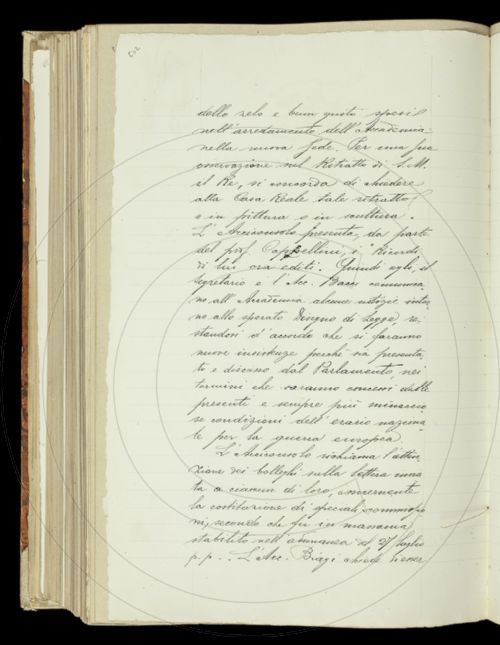 dello zelo e buon gusto spesi
nell'arredamento dell'Accademia
nella nuova Sede. Per una sua
osservazione sul Ritratto di S. M.
il Re, si concorda di chiedere
alla Casa Reale tale ritratto
o in pittura o in scultura.
L'Arciconsolo presenta, da parte
del prof. Cappellini, i "Ricordi"
di lui ora editi. Quindi egli, il
Segretario e l'Acc. Bacci comunica-
no all'Accademia alcune notizie intor-
no allo sperato Disegno di Legge, re-
standosi d'accordo che si faranno
nuove insistenze perché sia presenta-
to e discusso dal Parlamento, nei
termini che saranno concessi dalle
presenti e sempre più minaccio-
se condizioni dell'erario naziona-
le per la guerra europea.
L'Arciconsolo richiama l'atten-
zione dei Colleghi sulla lettera invia-
ta a ciascun di loro, concernente
la costituzione di speciali commissio-
ni, secondo che fu in massima
stabilito nell'adunanza del 27 luglio
p. p. L'Acc. Biagi chiede